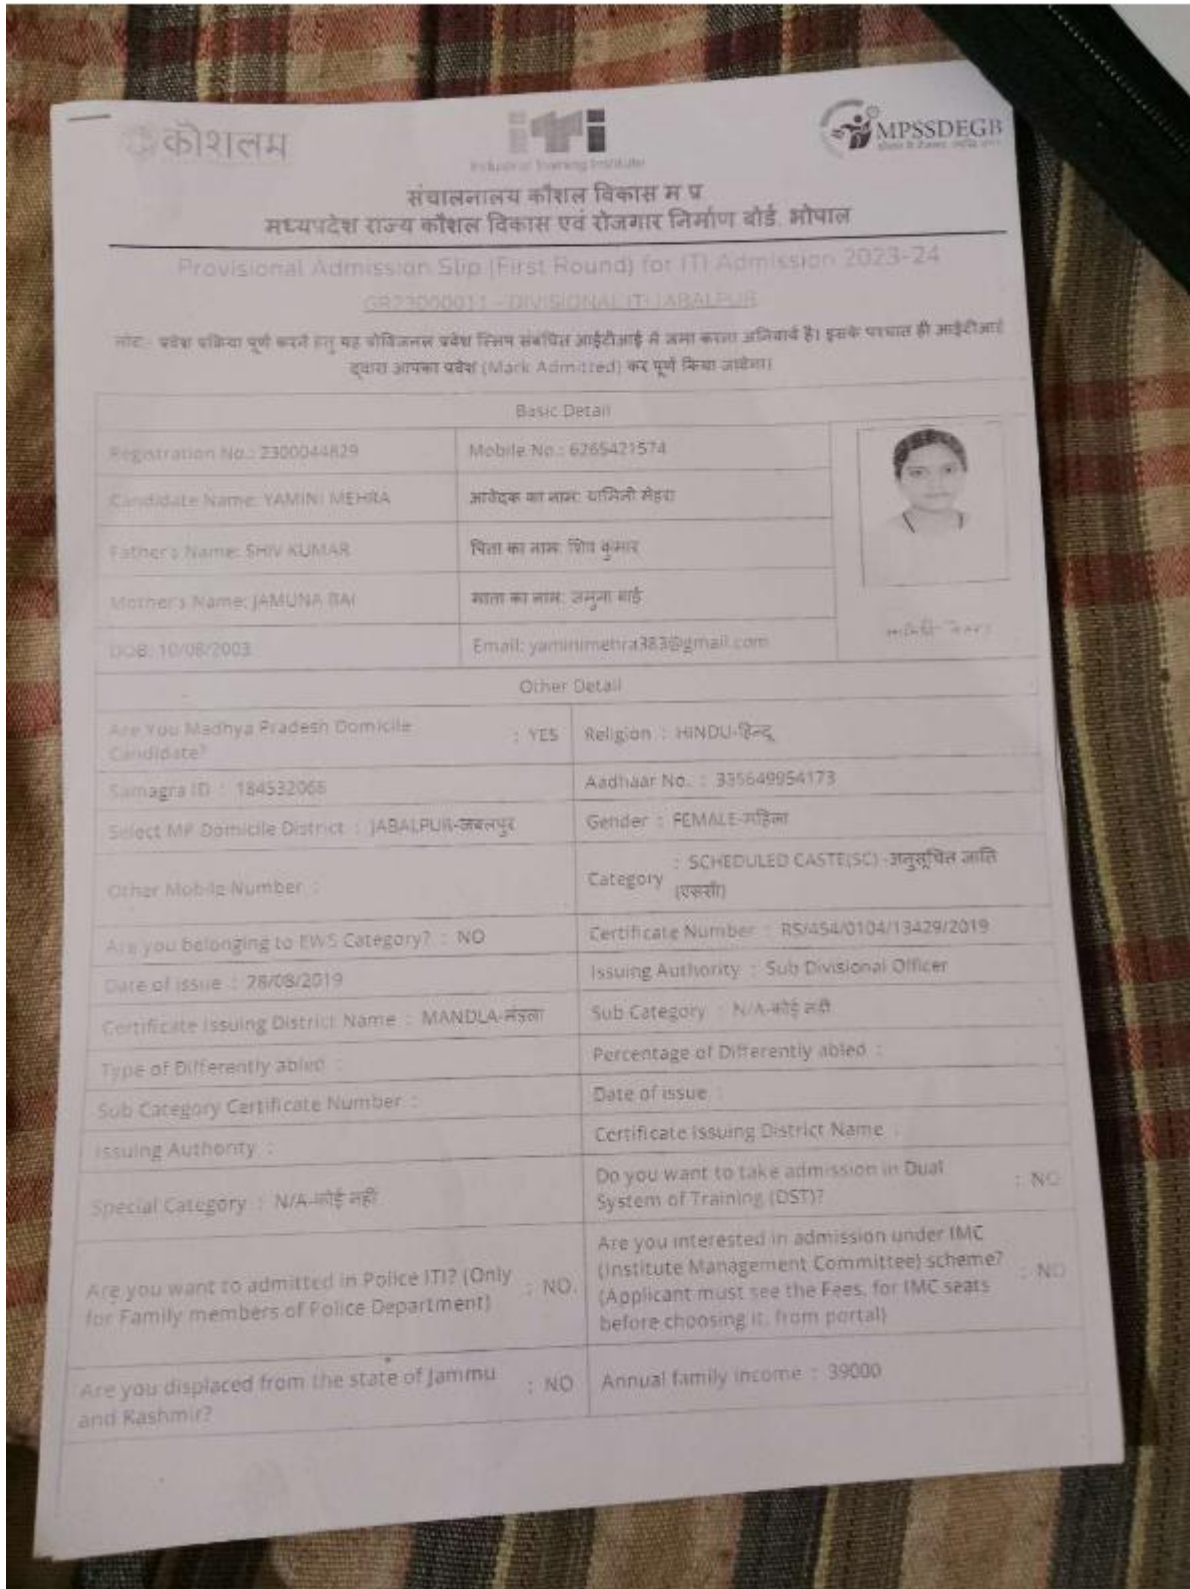 कौशलम
iTi
Industrial Training Institute
MPSSDEGB
संचालनालय कौशल विकास म प्र
मध्यप्रदेश राज्य कौशल विकास एवं रोजगार निर्माण बोर्ड, भोपाल
Provisional Admission Slip (First Round) for ITI Admission 2023-24
GR23000011 - DIVISIONAL ITI JABALPUR
नोट:- प्रवेश प्रक्रिया पूर्ण करने हेतु यह प्रोविजनल प्रवेश स्लिप संबंधित आईटीआई में जमा करना अनिवार्य है। इसके पश्चात ही आईटीआई
द्वारा आपका प्रवेश (Mark Admitted) कर पूर्ण किया जावेगा।
Basic Detail
Registration No.: 2300044829
Mobile No.: 6265421574
Candidate Name: YAMINI MEHRA
आवेदक का नाम: यामिनी मेहरा
Father's Name: SHIV KUMAR
पिता का नाम: शिव कुमार
Mother's Name: JAMUNA BAI
माता का नाम: जमुना बाई
DOB: 10/08/2003
Email: yaminimehra383@gmail.com
Other Detail
Are You Madhya Pradesh Domicile
Candidate?
: YES
Religion : HINDU-हिन्दू
Samagra ID : 184532066
Aadhaar No. : 335649954173
Select MP Domicile District : JABALPUR-जबलपुर
Gender : FEMALE-महिला
Other Mobile Number :
Category : SCHEDULED CASTE(SC) -अनुसूचित जाति
(एससी)
Are you belonging to EWS Category? : NO
Certificate Number : RS/454/0104/13429/2019
Date of issue : 28/08/2019
Issuing Authority : Sub Divisional Officer
Certificate Issuing District Name : MANDLA-मंडला
Sub Category : N/A-कोई नही
Type of Differently abled :
Percentage of Differently abled :
Sub Category Certificate Number :
Date of issue :
Issuing Authority :
Certificate Issuing District Name :
Special Category : N/A-कोई नही
Do you want to take admission in Dual
System of Training (DST)?
: NO
Are you want to admitted in Police ITI? (Only
for Family members of Police Department)
: NO
Are you interested in admission under IMC
(Institute Management Committee) scheme?
(Applicant must see the Fees, for IMC seats
before choosing it, from portal)
: NO
Are you displaced from the state of Jammu
and Kashmir?
: NO
Annual family income : 39000